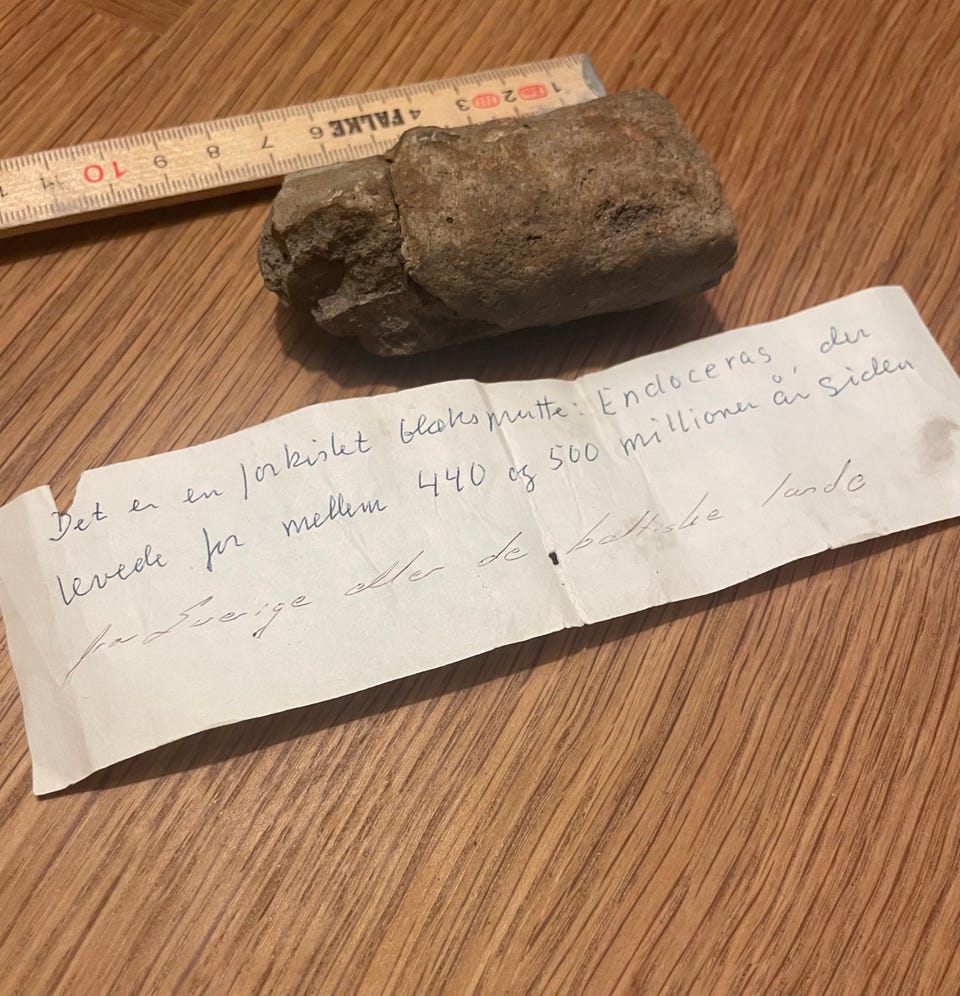 1 2 3 4 FALKE 6 7 8 9 10 11
Det er en forkislet blæksprutte: Endoceras, der
levede for mellem 440 og 500 millioner år siden
fra Sverige eller de baltiske lande